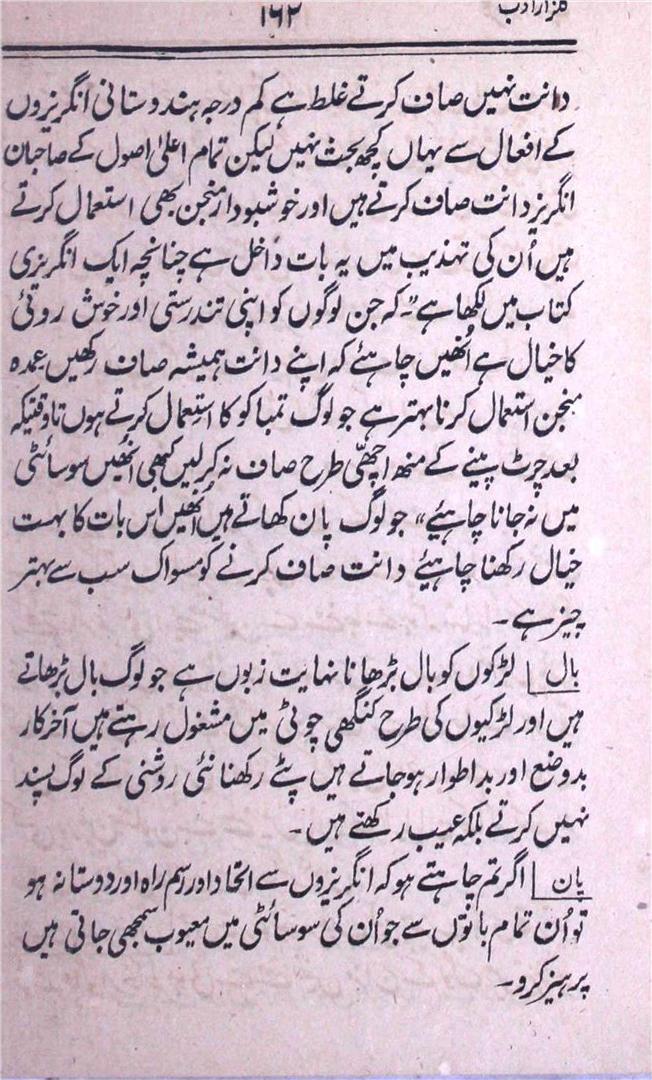 گلزار ادب
۱۶۲
دانت نہیں صاف کرتے غلط ہے کم درجہ ہندوستانی انگریزوں
کے افعال سے یہاں کچھ بحث نہیں لیکن تمام اعلیٰ اصول کے صاحبان
انگریز دانت صاف کرتے ہیں اور خوشبودار منجن بھی استعمال کرتے
ہیں اُن کی تہذیب میں یہ بات داخل ہے چنانچہ ایک انگریزی
کتاب میں لکھا ہے "کہ جن لوگوں کو اپنی تندرستی اور خوش روئی
کا خیال ہے اُنھیں چاہئے کہ اپنے دانت ہمیشہ صاف رکھیں عمدہ
منجن استعمال کرنا بہتر ہے جو لوگ تمباکو کا استعمال کرتے ہوں تاوقتیکہ
بعد چرٹ پینے کے منھ اچھّی طرح صاف نہ کرلیں کبھی اُنھیں سوسائٹی
میں نہ جانا چاہیئے" جو لوگ پان کھاتے ہیں اُنھیں اس بات کا بہت
خیال رکھنا چاہیئے دانت صاف کرنے کو مسواک سب سے بہتر
چیز ہے۔
بال | لڑکوں کو بال بڑھانا نہایت زبوں ہے جو لوگ بال بڑھاتے
ہیں اور لڑکیوں کی طرح کنگھی چوٹی میں مشغول رہتے ہیں آخرکار
بدوضع اور بداطوار ہوجاتے ہیں پٹے رکھنا نئی روشنی کے لوگ پسند
نہیں کرتے بلکہ عیب رکھتے ہیں۔
پان | اگر تم چاہتے ہو کہ انگریزوں سے اتحاد اور رسم راہ اور دوستانہ ہو
تو اُن تمام باتوں سے جو اُن کی سوسائٹی میں معیوب سمجھی جاتی ہیں
پرہیز کرو۔